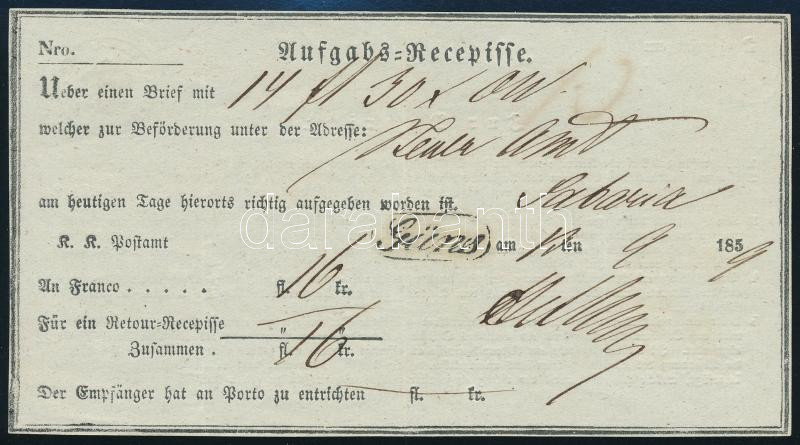 Nro.
Aufgabs=Recepisse.
Ueber einen Brief mit 14 fl 30 x ÖW.
welcher zur Beförderung unter der Adresse:
Steuer Amt
am heutigen Tage hierorts richtig aufgegeben worden ist. Sabaria
darabanth
K. K. Postamt Güns am 12 ten 9 1859
An Franco . . . . . fl. 16 kr.
Für ein Retour-Recepisse " "
Zusammen . fl. 16 kr.
Der Empfänger hat an Porto zu entrichten fl. kr.